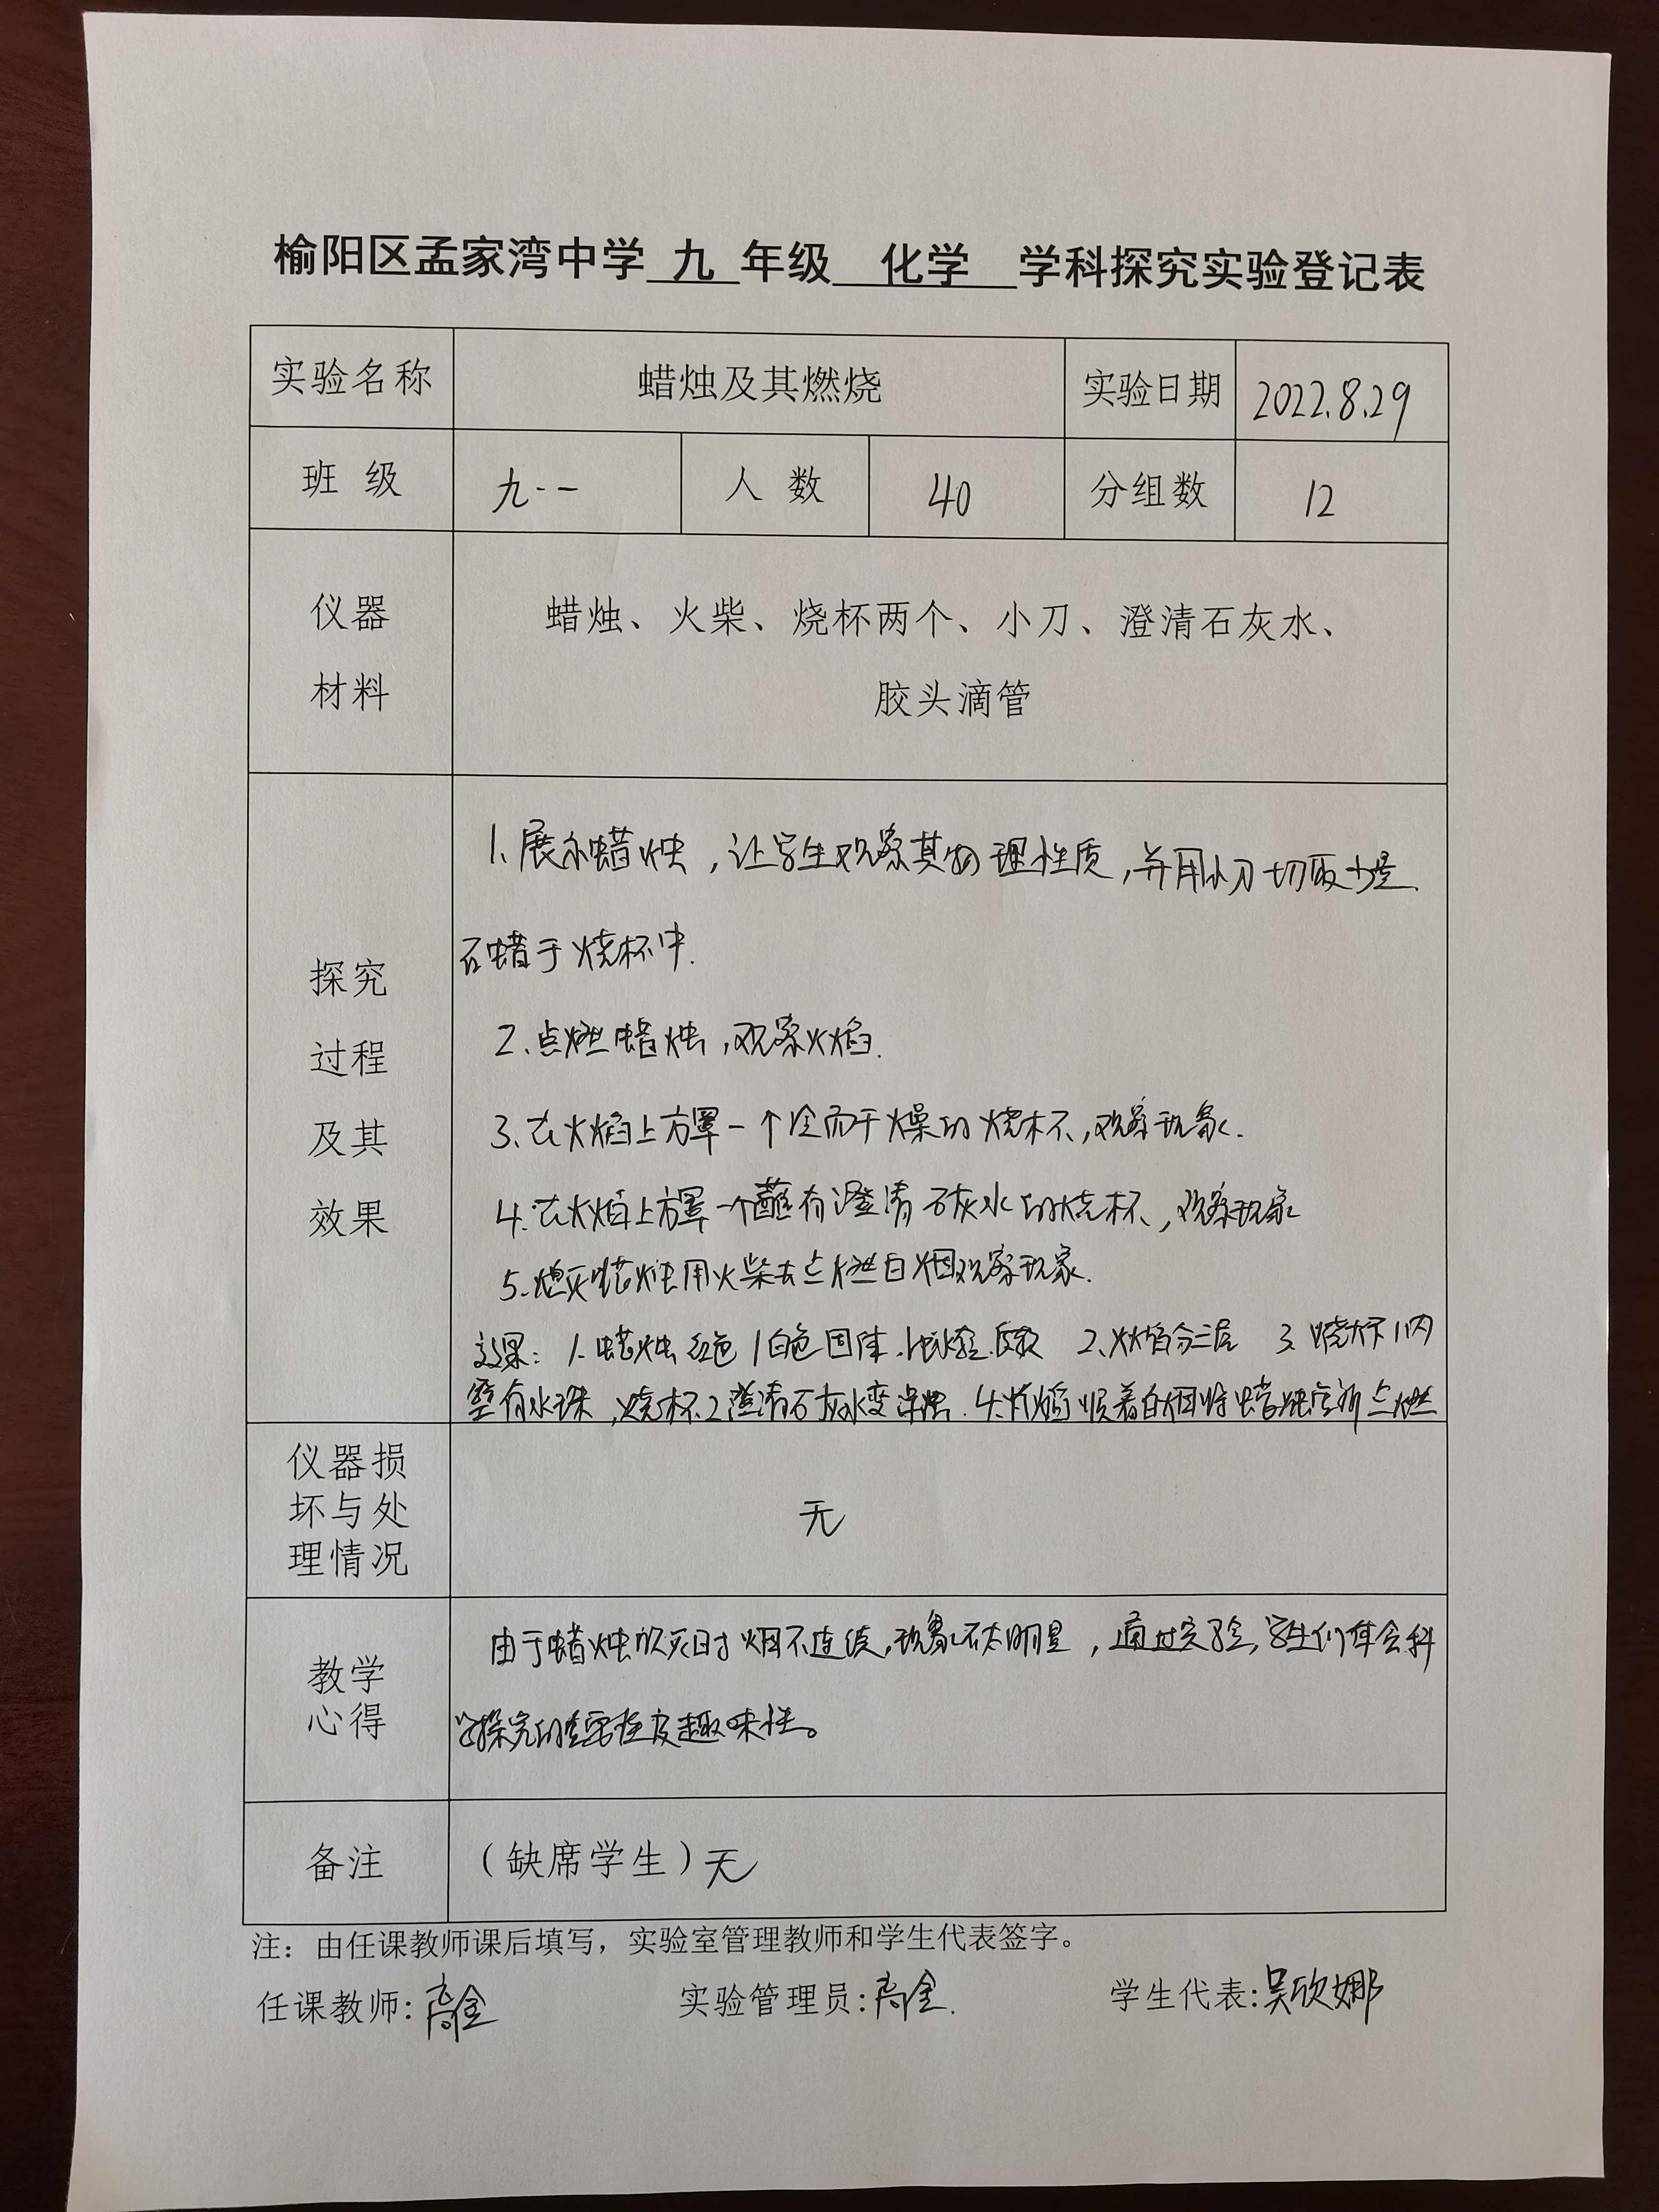 榆阳区孟家湾中学 九 年级 化学 学科探究实验登记表
实验名称 蜡烛及其燃烧 实验日期 2022.8.29
班 级 九·一 人 数 40 分组数 12
仪器
材料
蜡烛、火柴、烧杯两个、小刀、澄清石灰水、
胶头滴管
探究
过程
及其
效果
1、展示蜡烛,让学生观察其物理性质,并用小刀切取少量
石蜡于烧杯中.
2、点燃蜡烛,观察火焰.
3、在火焰上方罩一个冷而干燥的烧杯,观察现象.
4、在火焰上方罩一个蘸有澄清石灰水的烧杯,观察现象
5、熄灭蜡烛用火柴去点燃白烟观察现象.
效果: 1、蜡烛红色/白色固体. 2、火焰分三层 3、烧杯1内
壁有水珠,烧杯2澄清石灰水变浑浊. 4、火焰顺着白烟将蜡烛重新点燃
仪器损
坏与处
理情况
无
教学
心得
由于蜡烛吹灭时烟不连续,现象不太明显,通过实验,学生们体会科
学探究的重要性及趣味性。
备注 (缺席学生)无
注:由任课教师课后填写,实验室管理教师和学生代表签字。
任课教师:高金 实验管理员:高金. 学生代表:吴欣娜